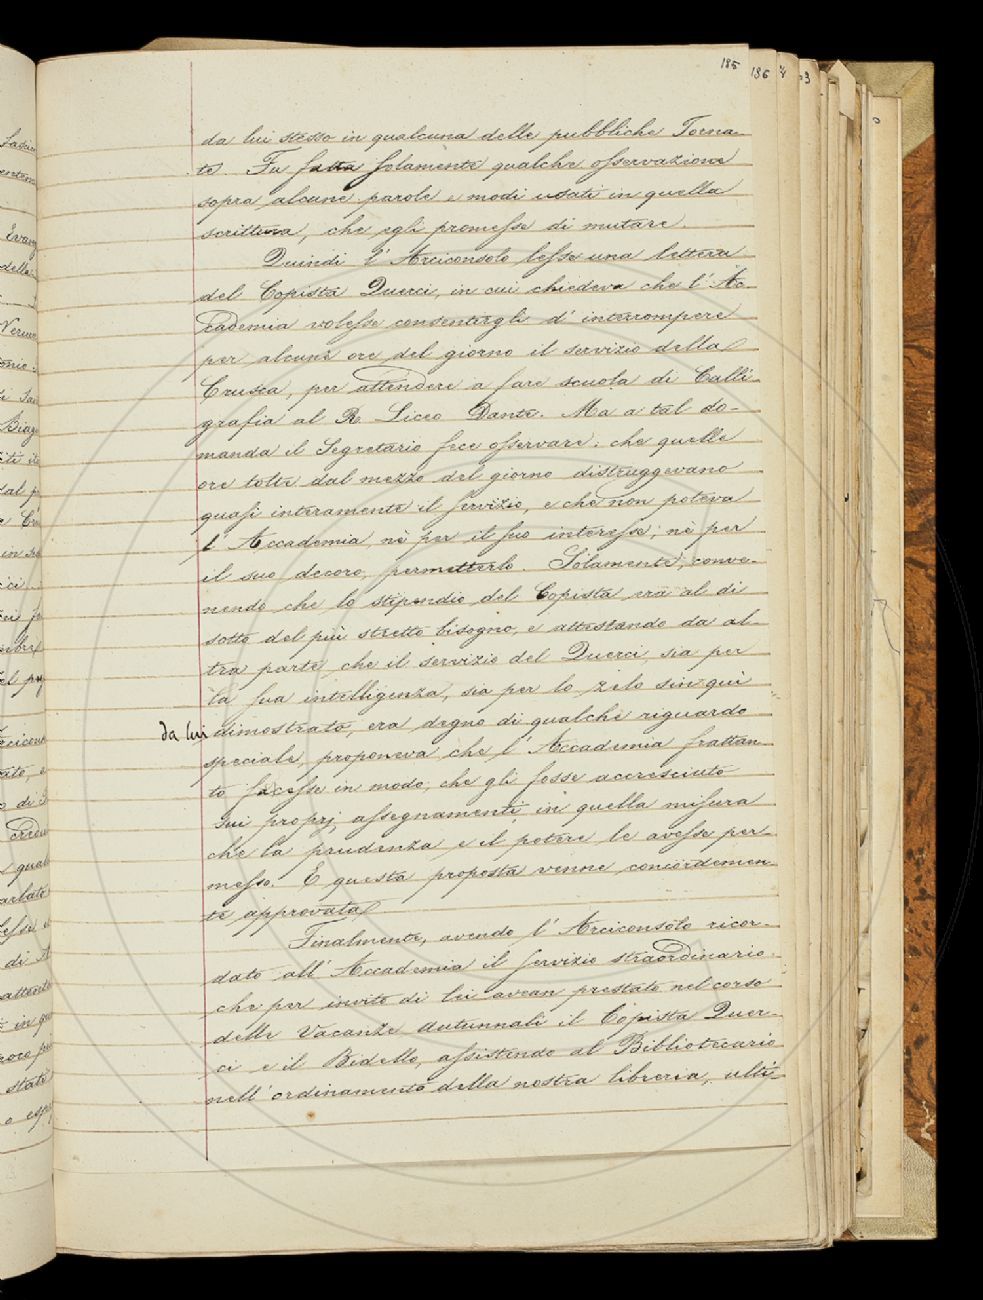 185
186
da lui stesso in qualcuna delle pubbliche Torna-
te. Fu fatta solamente qualche osservazione
sopra alcune parole e modi usati in quella
scrittura, che egli promesse di mutare.
Quindi l'Arciconsolo lesse una lettera
del Copista Querci, in cui chiedeva che l'Ac-
cademia volesse consentirgli d'interrompere
per alcune ore del giorno il servizio della
Crusca, per attendere a fare scuola di Calli-
grafia al R. Liceo Dante. Ma a tal do-
manda il Segretario fece osservare, che quelle
ore tolte dal mezzo del giorno distruggevano
quasi interamente il servizio, e che non poteva
l'Accademia, nè per il suo interesse, nè per
il suo decoro, permetterlo. Solamente, conve-
nendo che lo stipendio del Copista era al di
sotto del più stretto bisogno, e attestando da al-
tra parte, che il servizio del Querci, sia per
la sua intelligenza, sia per lo zelo sin qui
da lui dimostrato, era degno di qualche riguardo
speciale, proponeva che l'Accademia frattan-
to facesse in modo, che gli fosse accresciuto
sui proprj assegnamenti, in quella misura
che la prudenza e il potere le avesse per-
messo. E questa proposta venne concordemen-
te approvata.
Finalmente, avendo l'Arciconsolo ricor-
dato all'Accademia il servizio straordinario
che per invito di lei avean prestato nel corso
delle Vacanze autunnali il Copista Quer-
ci e il Bidello, assistendo al Bibliotecario
nell'ordinamento della nostra libreria, ulti-